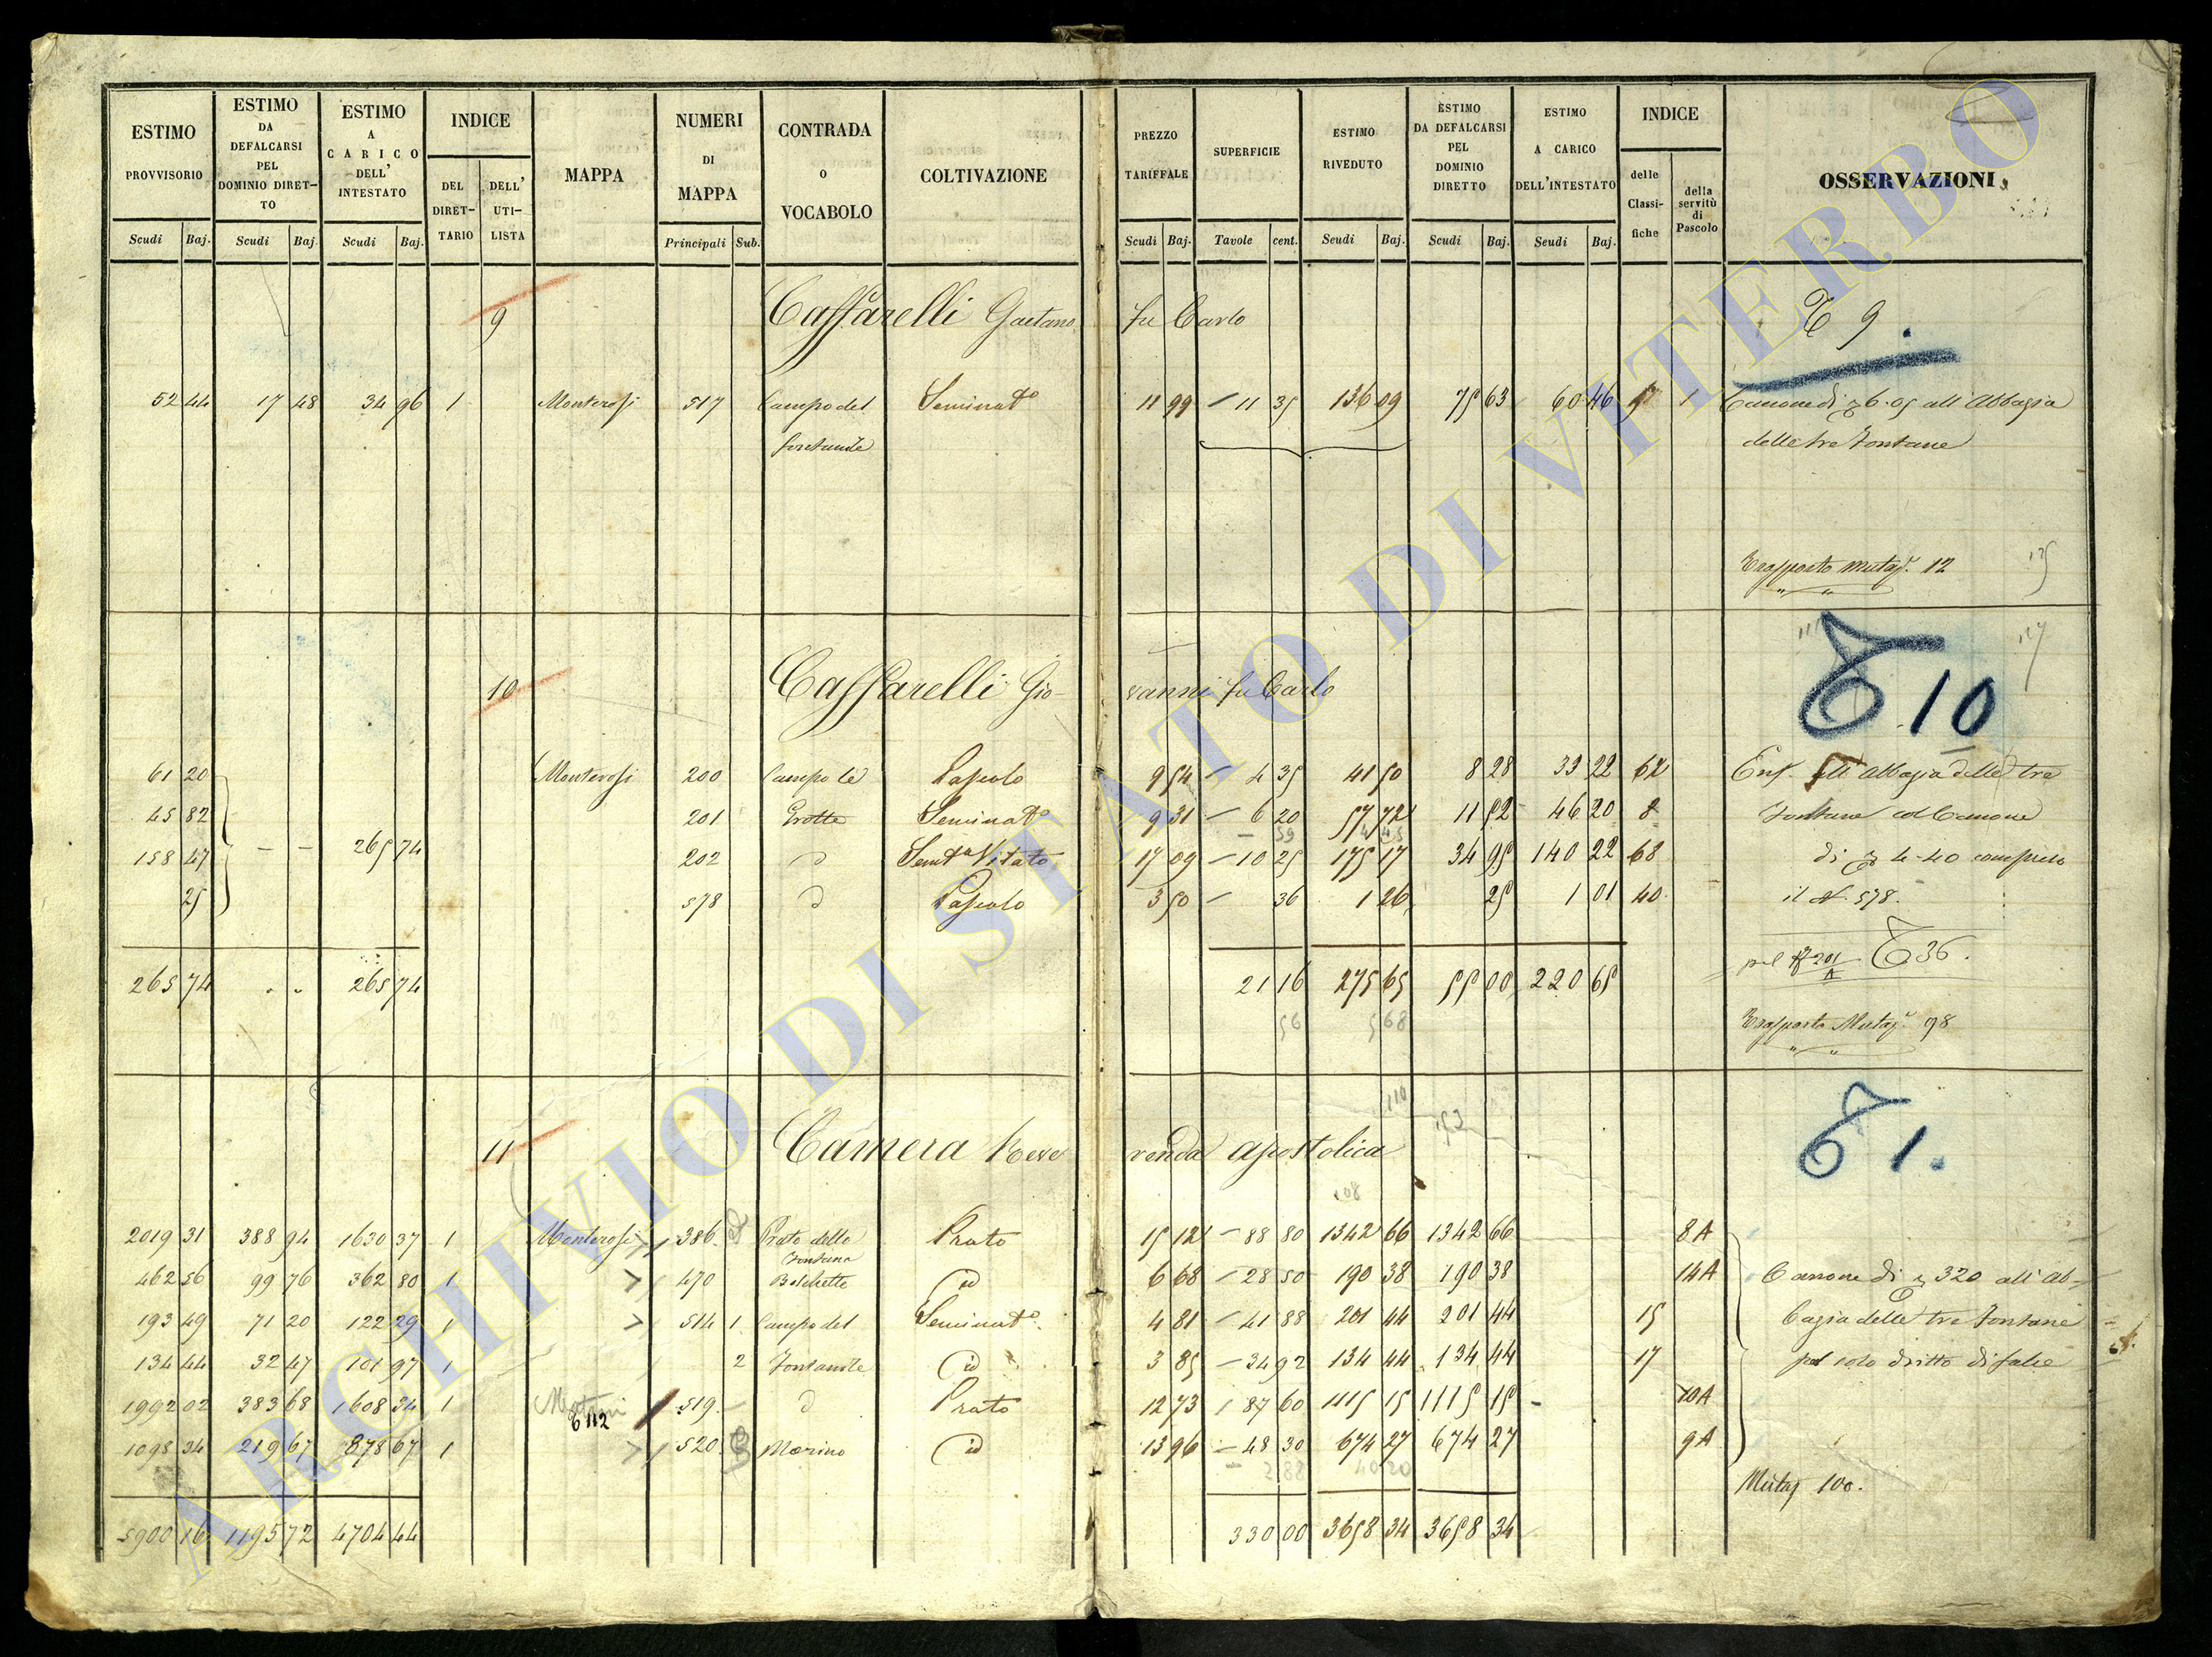 ESTIMO PROVVISORIO Scudi Baj.
ESTIMO DA DEFALCARSI PEL DOMINIO DIRET-TO Scudi Baj.
ESTIMO A CARICO DELL' INTESTATO Scudi Baj.
INDICE DEL DIRET-TARIO DELL' UTI-LISTA
MAPPA
NUMERI DI MAPPA Principali Sub.
CONTRADA O VOCABOLO
COLTIVAZIONE
PREZZO TARIFFALE Scudi Baj.
SUPERFICIE Tavole cent.
ESTIMO RIVEDUTO Scudi Baj.
ESTIMO DA DEFALCARSI PEL DOMINIO DIRETTO Scudi Baj.
ESTIMO A CARICO DELL'INTESTATO Scudi Baj.
INDICE delle Classi-fiche della servitù di Pascolo
OSSERVAZIONI
9 Caffarelli Gaetano fu Carlo 9
52 44 17 48 34 96 1 Monterosi 517 Campo del Seminat° 11 99 – 11 35 136 09 75 63 60 46 1 Canone di 6.05 all'Abbazia
fontanile delle tre Fontane
Trasporto Mutaz. 12
10 Caffarelli Gio-vanni fu Carlo 10
61 20 Monterosi 200 Campo le Pascolo 9 54 – 4 35 41 50 8 28 33 22 62 Enf. all'Abbazia delle tre
45 82 201 Grotte Seminat° 9 31 – 6 20 57 72 11 52 46 20 8 Fontane col Canone
158 47 – – 265 74 202 Vitato 17 09 – 10 25 175 17 34 95 140 22 68 di 4-40 compreso
25 578 Pascolo 3 50 – 36 1 26 25 1 01 40 il N. 578.
265 74 265 74 21 16 275 65 55 00 220 65
pel N 201 36.
56 5 68
Trasporto Mutaz. 98
11 Camera Reve-renda Apostolica 1.
2019 31 388 94 1630 37 1 Monterosi 386 Prato della Fontana Prato 15 12 – 88 80 1342 66 1342 66 8A
462 56 99 76 362 80 1 470 id 6 68 – 28 50 190 38 190 38 14A Canone di 320 all'Ab-
193 49 71 20 122 29 1 514 1 Campo del Seminat° 4 81 – 41 88 201 44 201 44 15 bazia delle tre Fontane
134 44 32 47 101 97 1 2 Fontanile id 3 85 – 34 92 134 44 134 44 17 pel solo dritto di falce
1992 02 383 68 1608 34 1 519 Prato 12 73 87 60 1115 15 1115 15 10A
6112
1098 34 219 67 878 67 1 520 Morino id 13 96 – 48 30 674 27 674 27 9A
2 88 40 20
Mutaz 100.
5900 16 1195 72 4704 44 330 00 3658 34 3658 34
ARCHIVIO DI STATO DI VITERBO